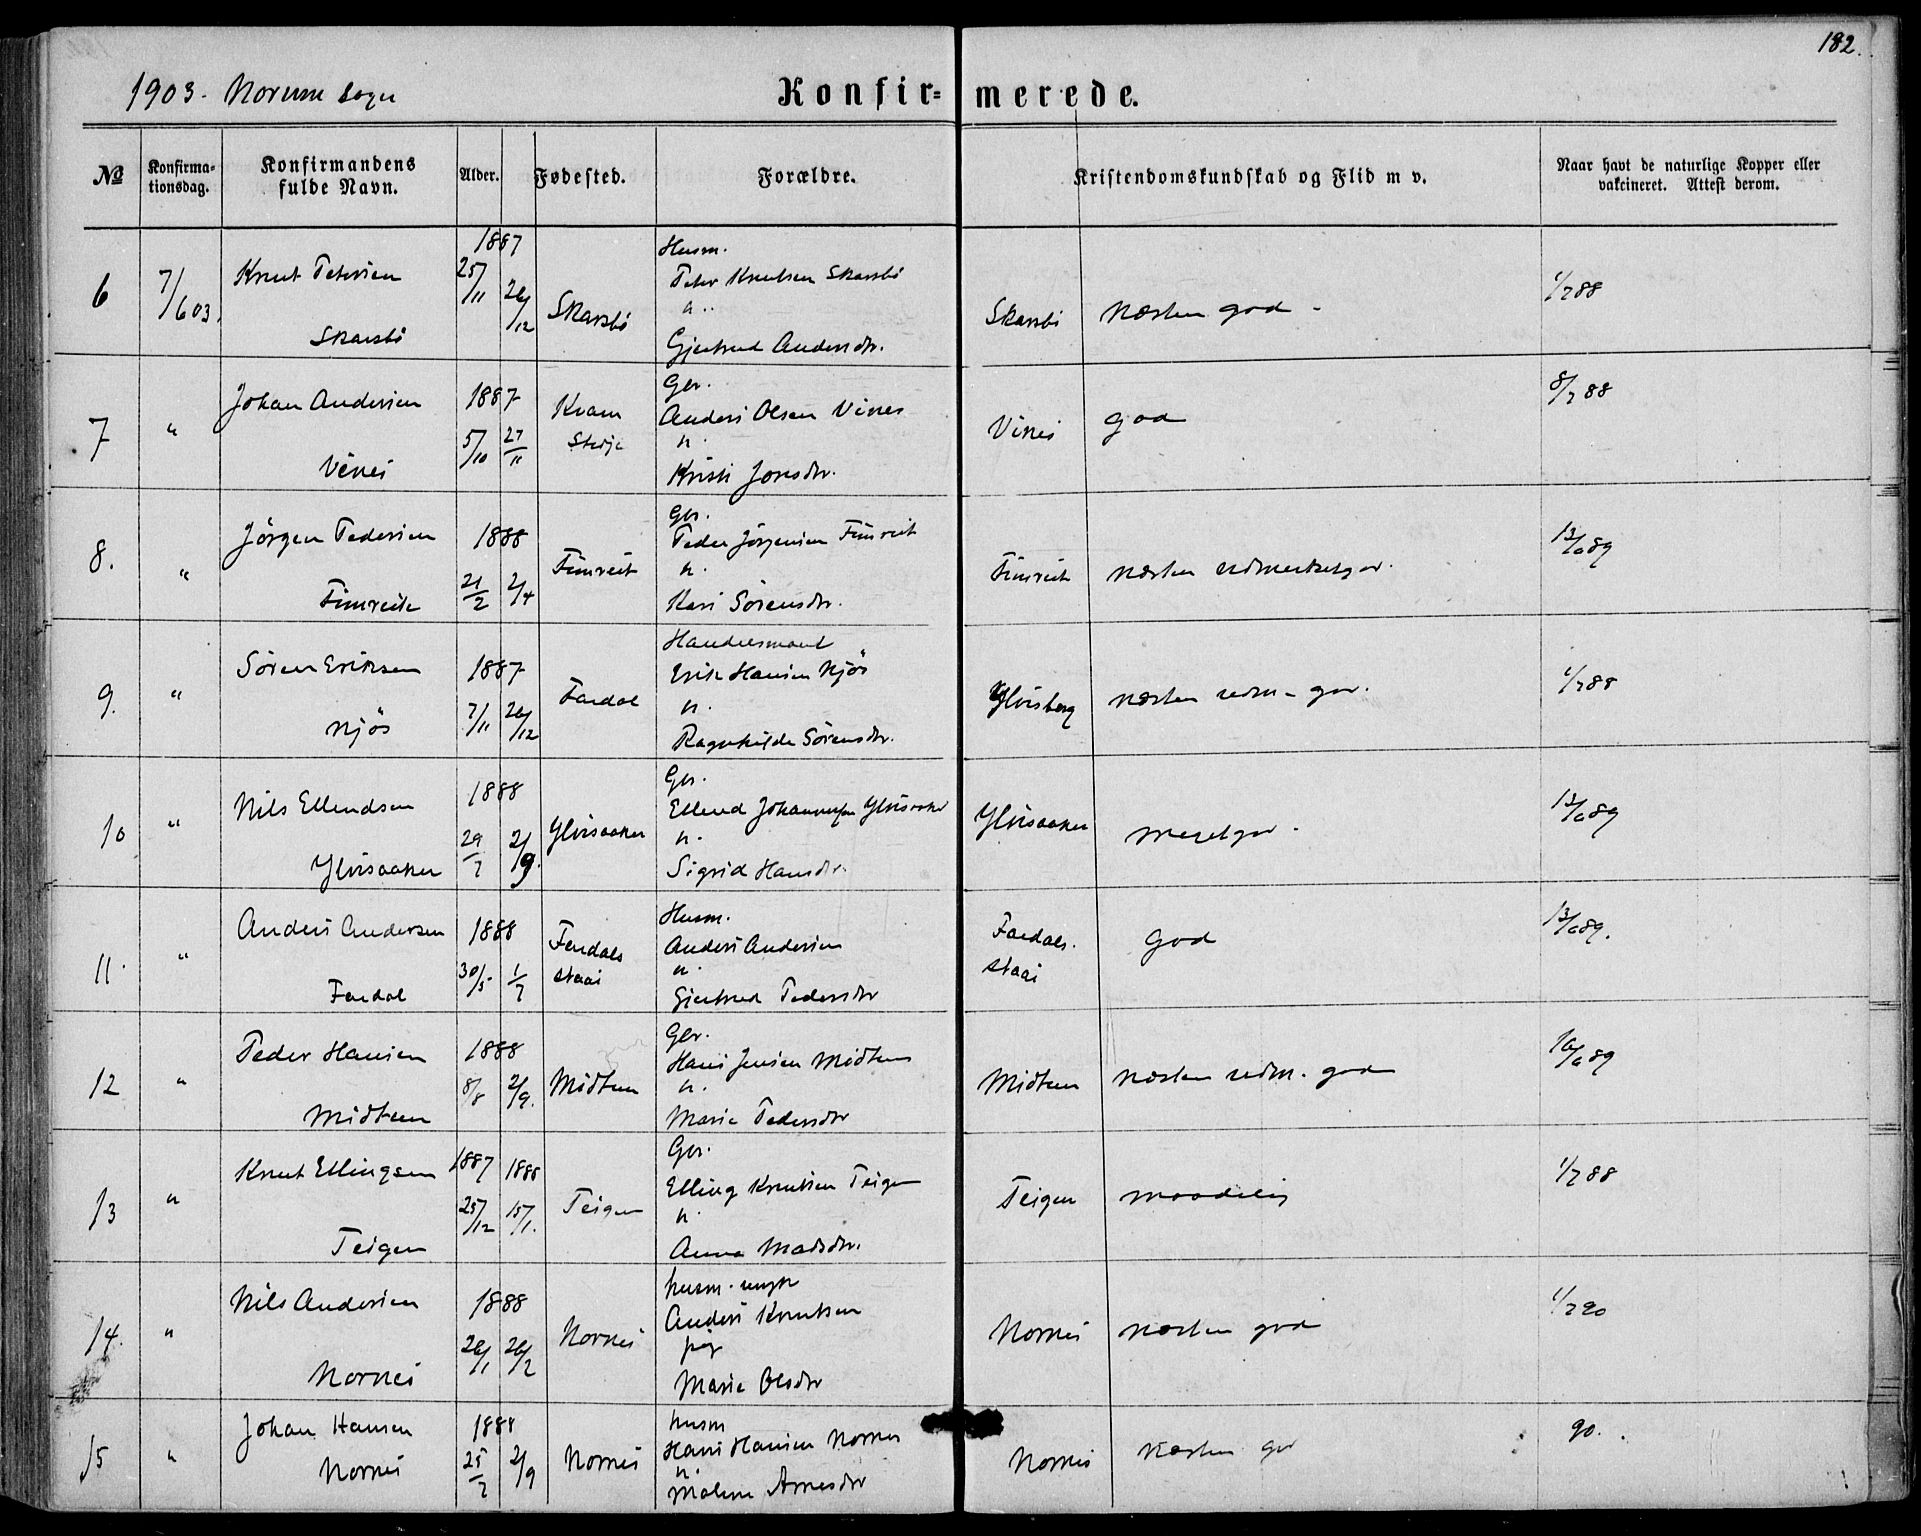 182.
1903. Norum Sogn
Konfir= merede.
№ Konfirma= tionsdag. Konfirmandens fulde Navn. Alder. Fødested. Forældre. Kristendomskundskab og Flid m v. Naar havt de naturlige Kopper eller vakcineret. Attest derom.
1887 Husm.
6 7/6 03. Knut Petersen 25/11 26/12 Skarsbö Peter Knutsen Skarsbö Skarsbö Næsten god - 1/7 88
Skarsbö Gjertrud Andersdtr.
Johan Andersen 1887 Kvam Gbr. 8/7 88
7 " 5/10 27/11 Stedje Anders Olsen Vines Vines god
Vines Kristi Jonsdtr.
Jörgen Pedersen 1888 Gbr. 13/6 89
8. " Fimreite 21/2 2/4 Fimreit Peder Jörgensen Fimreit Fimreit næsten udmerketgod.
u.
Kari Sörensdtr.
Handelsmand
Sören Eriksen 1887 Erik Hansen Njös
9. " Njös 7/11 26/12 Fardal u. Ylvisberg næsten udm - god. 1/7 88
Ragnhilda Sörensdtr.
Gbr.
Nils Ellendsen 1888 Ellend Johannessen Ylvisaaker 13/6 89
10 " Ylvisaaker 29/7 2/9. Ylvisaaker u. Ylvisaaker megetgod -
Sigrid Hansdtr.
Husm.
Anders Andersen 1888 Fardals Anders Andersen Fardals. God 13/6 89.
11. " Fardal 30/5 1/7 u. staai
Gjertrud Pedersdtr
Gbr.
Peder Hansen 1888 Hans Jensen Midtun 16/6 89
12 " Midtun 8/8 2/9. Midtun u. Midtun næsten udm. god
Marie Pedersdtr
Gbr.
Knut Ellingsen 1887 1888 Elling Knutsen Teigen 1/7 88
13 " Teigen 25/12 15/1. Teigen u. Teigen maadelig
Anna Madsdtr.
husm. ungk
Nils Andersen 1888 Anders Knutsen 1/7 90
14. " Nornes 26/1 26/2 Nornes pig Nornes næsten god
Marie Olsdtr
husm
Johan Hansen 1888 Hans Hansen Nornes 90.
15 " Nornes 25/7 2/9 Nornes u. Nornes næsten god
Malene Arnesdtr